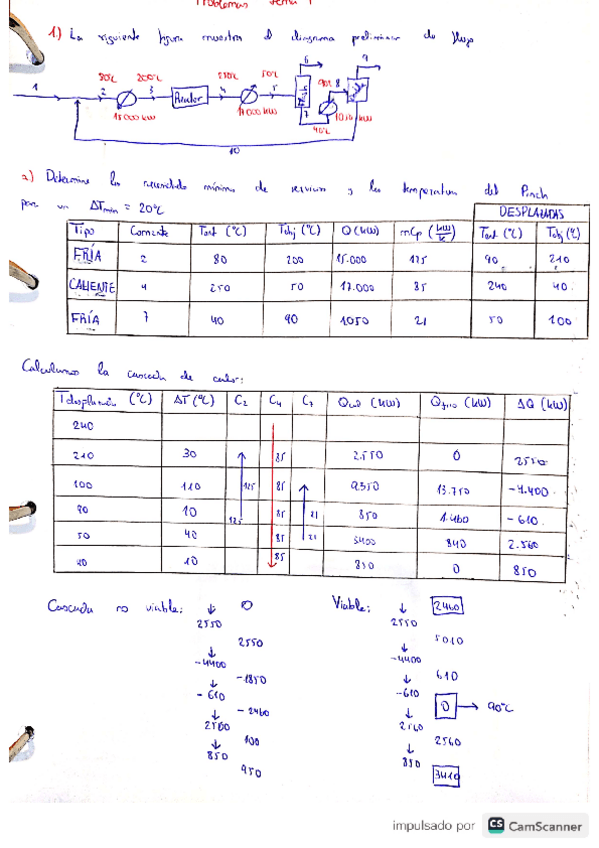 Problemas Tema 1
1.) La siguiente figura muestra el diagrama preliminar de flujo
6 9
80ºC 200ºC 250ºC 50ºC 90ºC 8
1 2 3 Reactor 4 5 7
15000 kW 17000 kW 40ºC 1050 kW
10
a) Determine las necesidades mínimas de servicios y las temperaturas del Pinch
para un ΔTmin = 20ºC
DESPLAZADAS
Tipo Corriente Tent (ºC) Tobj (ºC) Q (kW) mCp (kW/K) Tent (ºC) Tobj (ºC)
FRÍA 2 80 200 15.000 125 90 210
CALIENTE 4 250 50 17.000 85 240 40
FRÍA 7 40 90 1050 21 50 100
Calculamos la cascada de calor:
Tdesplazada (ºC) ΔT (ºC) C2 C4 C7 Qced (kW) Q (kW) ΔQ (kW)
240
210 30 85 2.550 0 2550
100 110 125 85 9.350 13.750 -4.400
90 10 125 85 21 850 1.460 -610
50 40 85 21 3400 840 2.560
40 10 85 850 0 850
Cascada no viable: ↓ 0 Viable: ↓ 2460
2550 2550
2550 5010
↓ ↓
-4400 -4400
-1850 610
↓ ↓
-610 -610
-2460 0 → 90ºC
↓ ↓
2560 2560
100 2560
↓ ↓
850 850
950 3410
impulsado por CS CamScanner